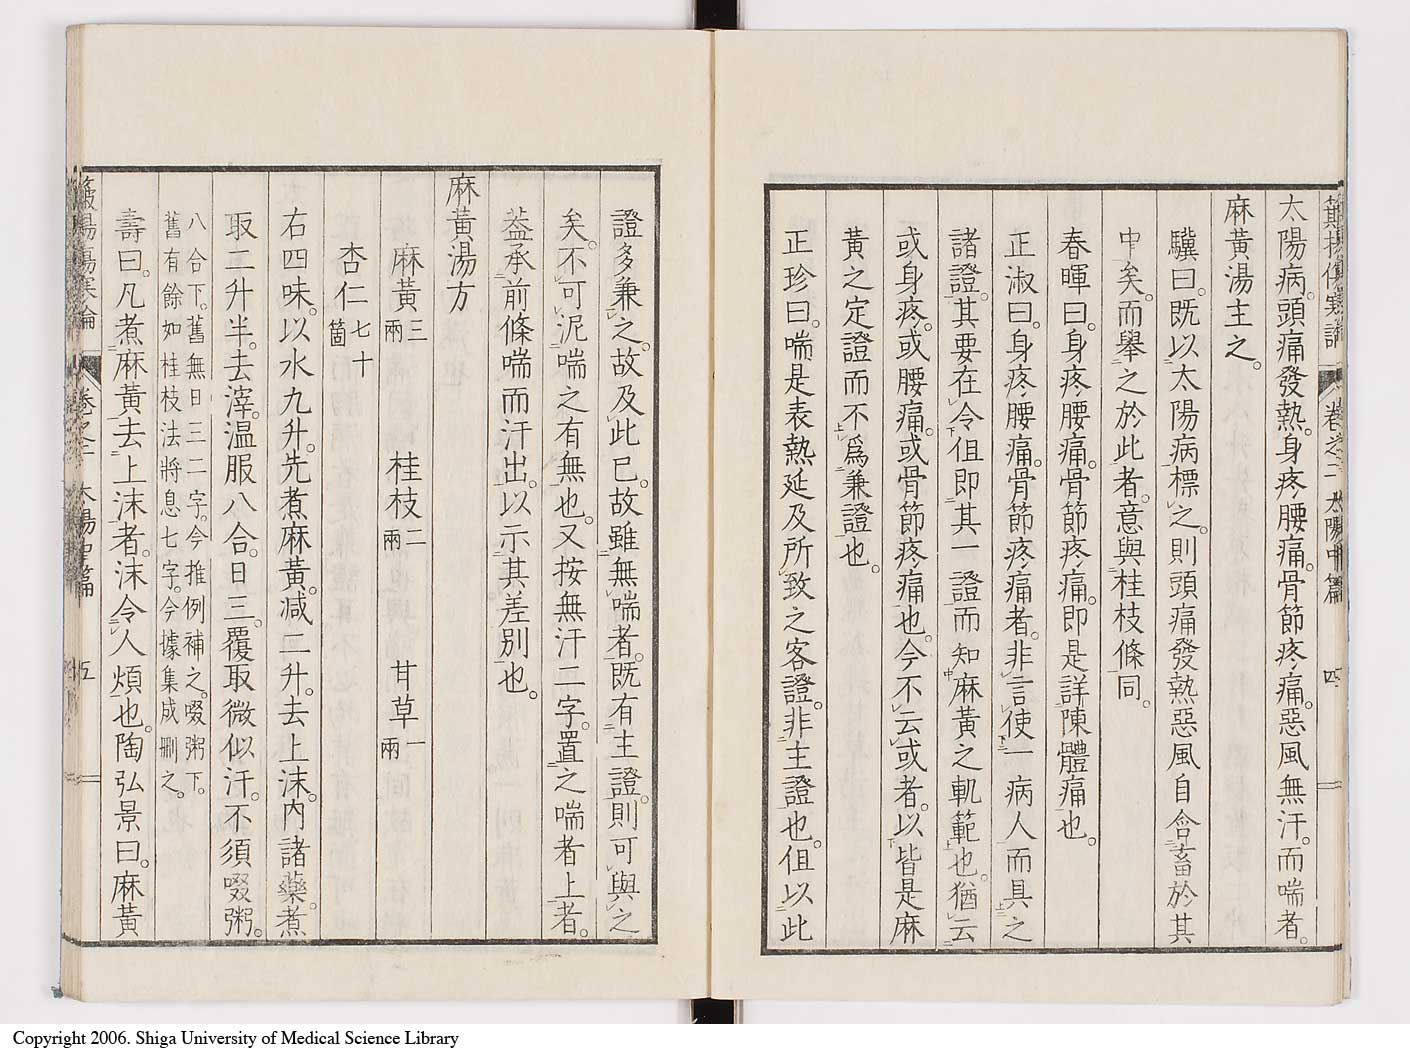 太陽病。頭痛發熱。身疼腰痛。骨節疼痛。惡風無汗。而喘者。
麻黃湯主之。
驥曰。既以太陽病標之。則頭痛發熱惡風自含畜於其
中矣。而舉之於此者。意與桂枝條同。
春暉曰。身疼腰痛。骨節疼痛。即是詳陳體痛也。
正淑曰。身疼腰痛。骨節疼痛者。非言使一病人而具之
諸證。其要在令伹即其一證而知麻黃之軌範也。猶云
或身疼。或腰痛。或骨節疼痛也。今不云或者。以皆是麻
黃之定證而不爲兼證也。
正珍曰。喘是表熱延及所致之客證。非主證也。伹以此
卷之二 太陽中篇 四
證多兼之。故及此已。故雖無喘者。既有主證。則可與之
矣。不可泥喘之有無也。又按無汗二字。置之喘者上者。
葢承前條喘而汗出。以示其差別也。
麻黃湯方
麻黃三兩 桂枝二兩 甘草一兩
杏仁七十箇
右四味。以水九升。先煮麻黃。减二升。去上沫。内諸藥。煮
取二升半。去滓。温服八合。日三。覆取微似汗。不須啜粥。
八合下。舊無日三二字。今推例補之。啜粥下。
舊有餘如桂枝法將息七字。今據集成刪之。
壽曰。凡煮麻黃去上沫者。沫令人煩也。陶弘景曰。麻黃